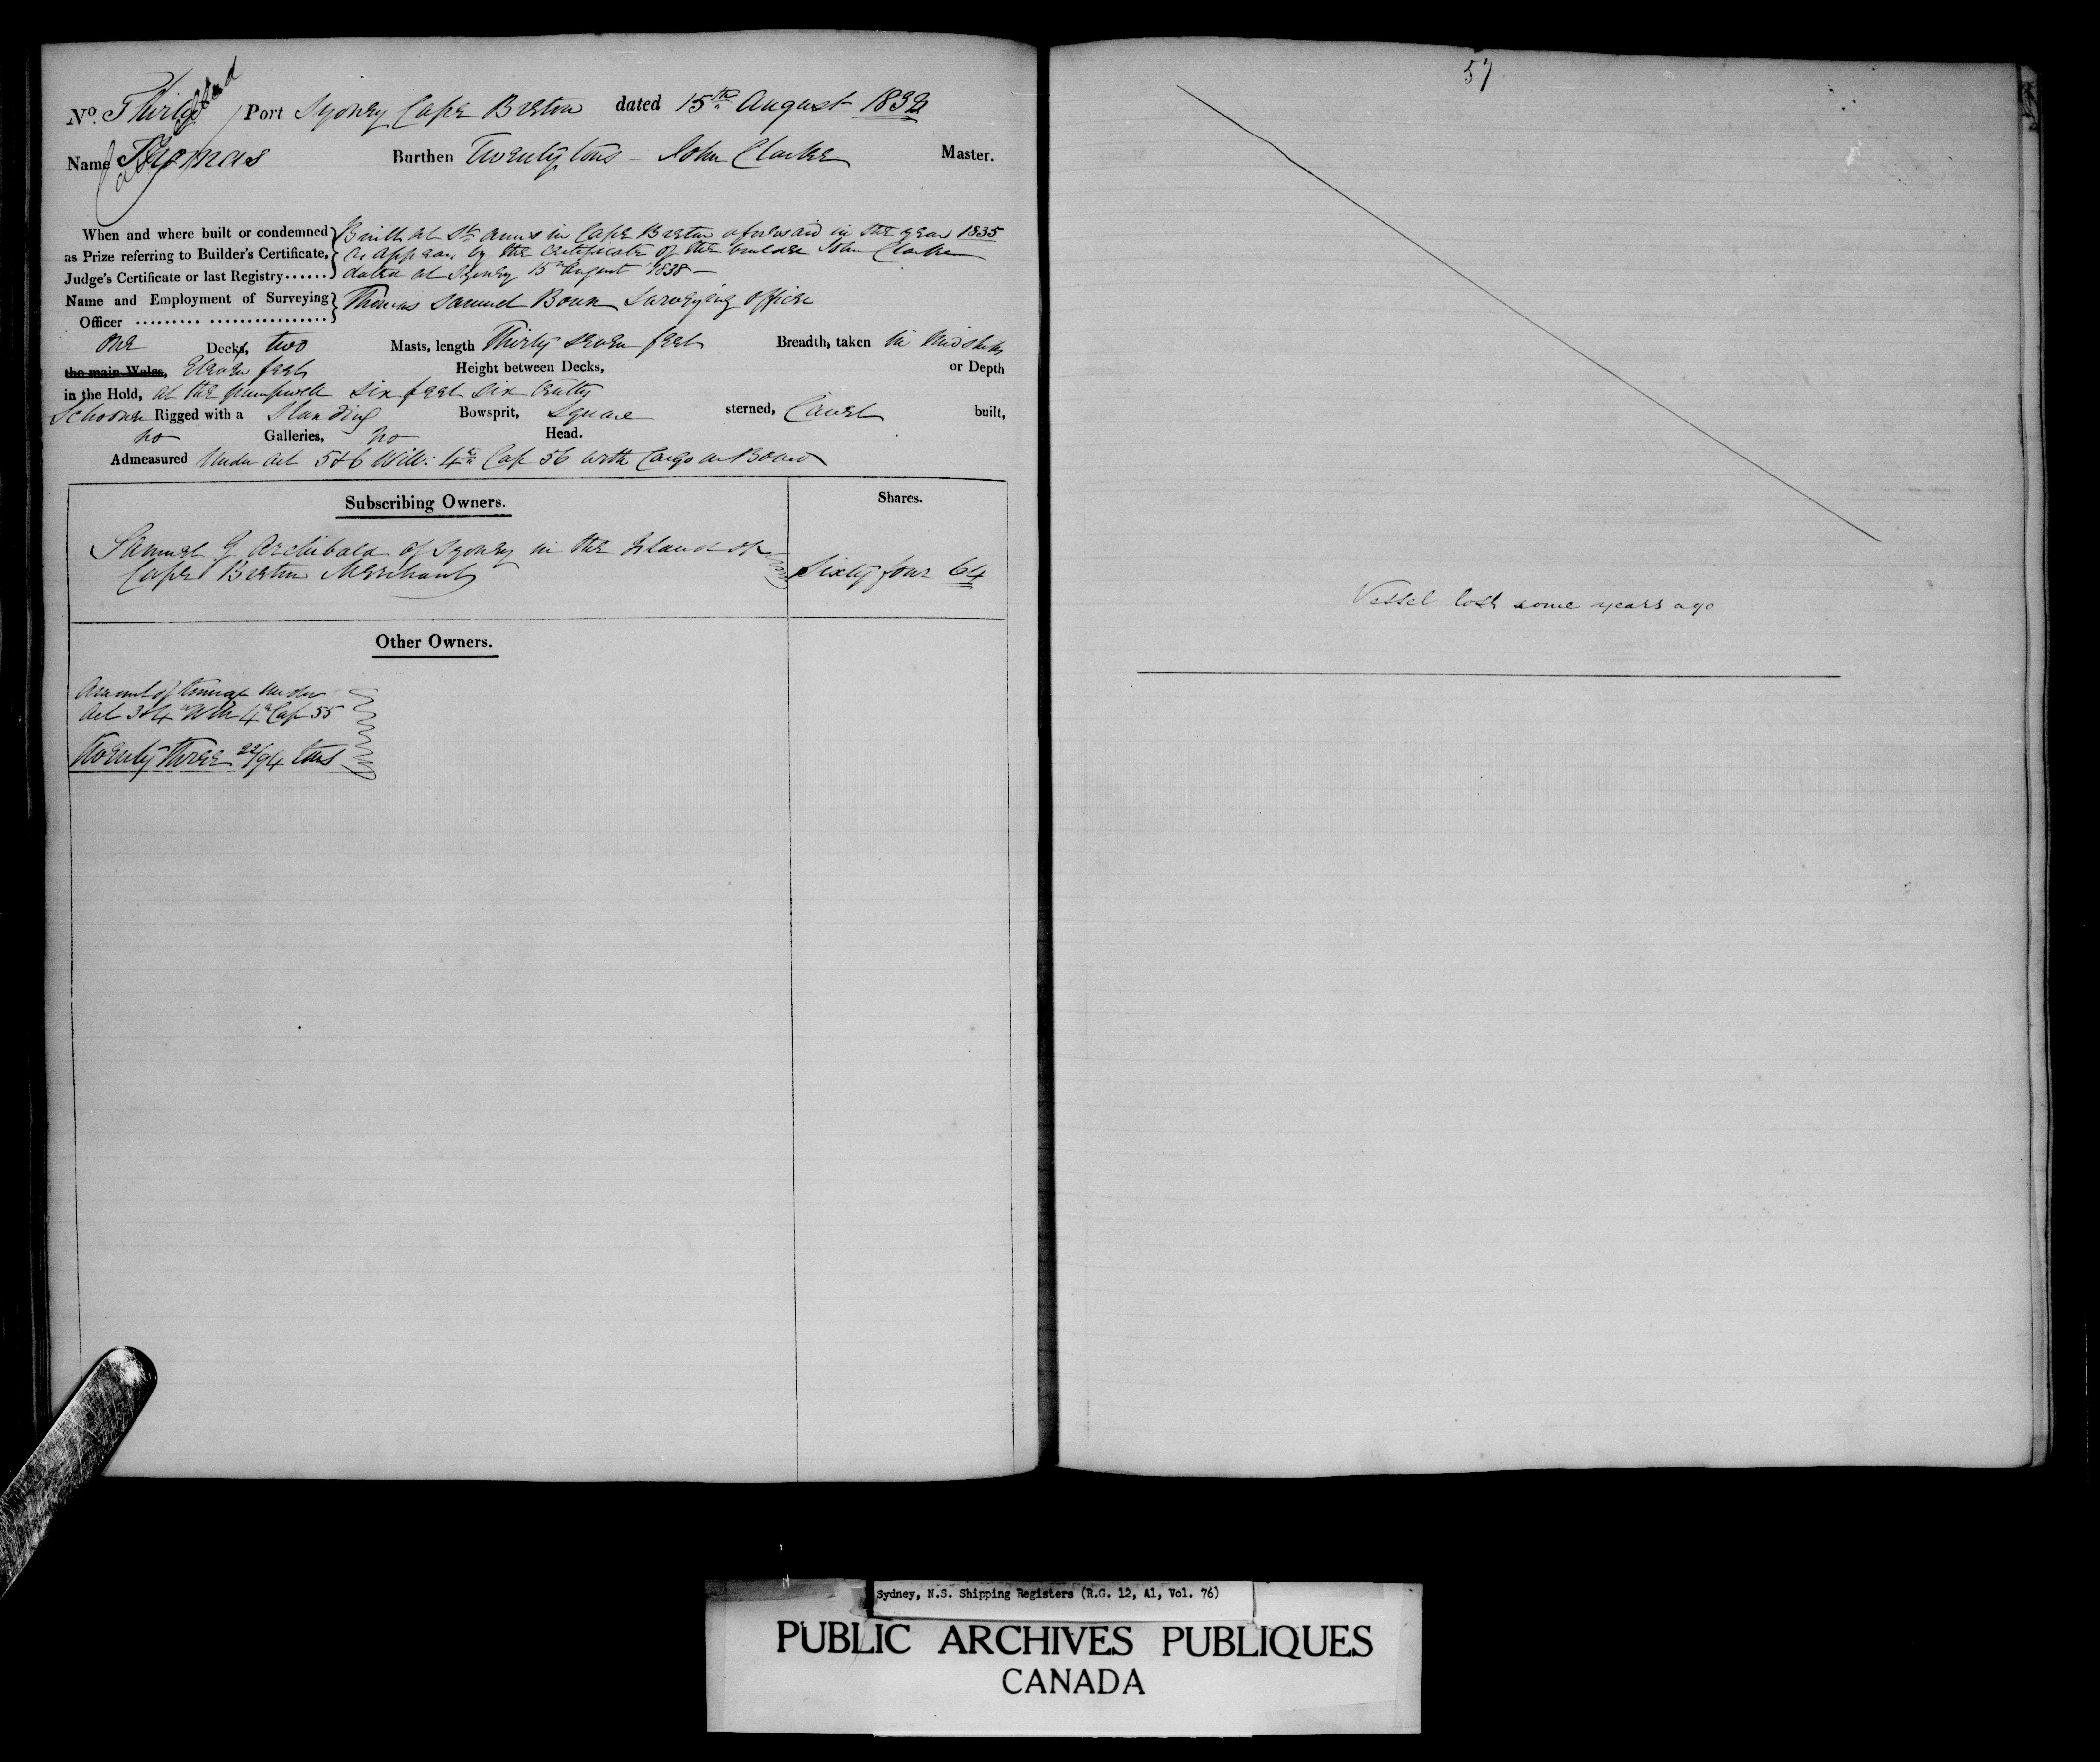 No. Thirty Port Sydney Cape Breton dated 15th August 1838
Name Thomas Burthen Twenty tons - John Clarke Master.
When and where built or condemned Built at St Anns in Cape Breton aforesaid in the year 1835
as Prize referring to Builder's Certificate, as appears by the Certificate of the builder John Clarke
Judge's Certificate or last Registry...... dated at Sydney 15th August 1838 -
Name and Employment of Surveying Thomas Samuel Bown Surveying Officer
Officer ......... ................
One Decks, two Masts, length Thirty seven feet Breadth, taken in Midships
the main Wales, Eleven feet Height between Decks, or Depth
in the Hold, at the pumpwell six feet six tenths
Schooner Rigged with a Standing Bowsprit, Square sterned, Carvel built,
no Galleries, no Head.
Admeasured Under Act 5 & 6 Will: 4th Cap 56 with Cargo on Board
Subscribing Owners. Shares.
Samuel G Archibald of Sydney in the Island of
Cape Breton Merchant Sixty four 64
Other Owners.
Amount of tonnage under
Act 3 & 4th Will 4th Cap 55
Twenty three 22/94 tons
57
Vessel lost some years ago
Sydney, N.S. Shipping Registers (R.G. 12, A1, Vol. 76)
PUBLIC ARCHIVES PUBLIQUES
CANADA